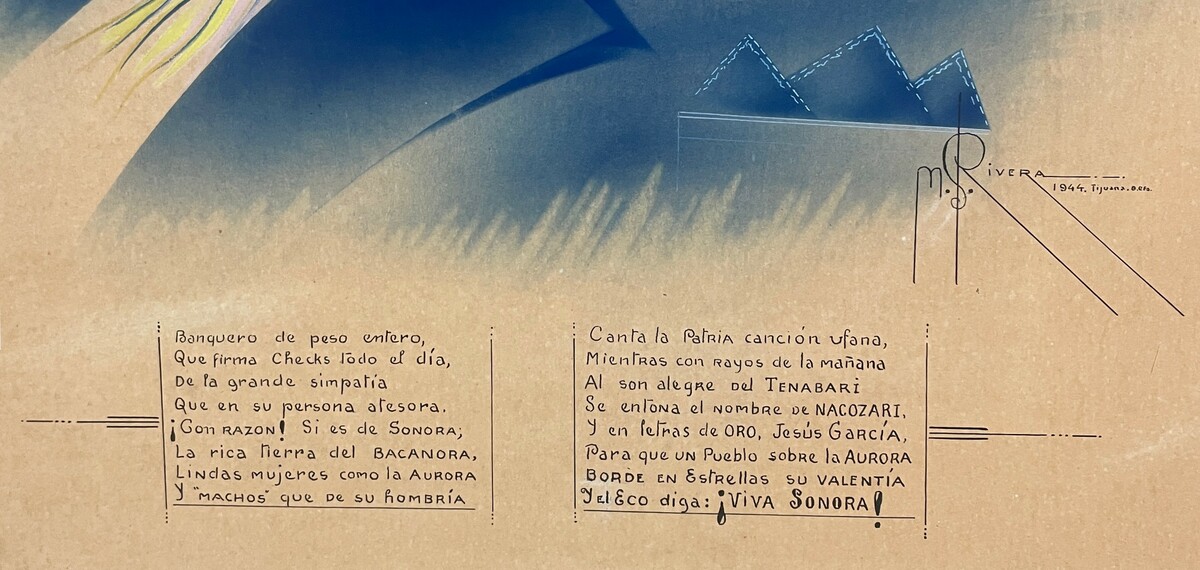 M. S. Rivera
1944. Tijuana. B. Cfa.
Banquero de peso entero,
Que firma Checks todo el día,
De la grande simpatía
Que en su persona atesora.
¡Con RAZON! Si es de SONORA;
La rica tierra del BACANORA,
Lindas mujeres como la AURORA
Y "MACHOS" que DE su hombría
Canta la PatRIA canción ufana,
Mientras con rayos de la mañana
Al son alegre del TENABARI
Se entona el nombre DE NACOZARI,
Y en letras de ORO, Jesús GARCÍA,
Para que un Pueblo sobre la AURORA
BORDE EN Estrellas su VALENTÍA
Y el Eco diga: ¡VIVA SONORA!